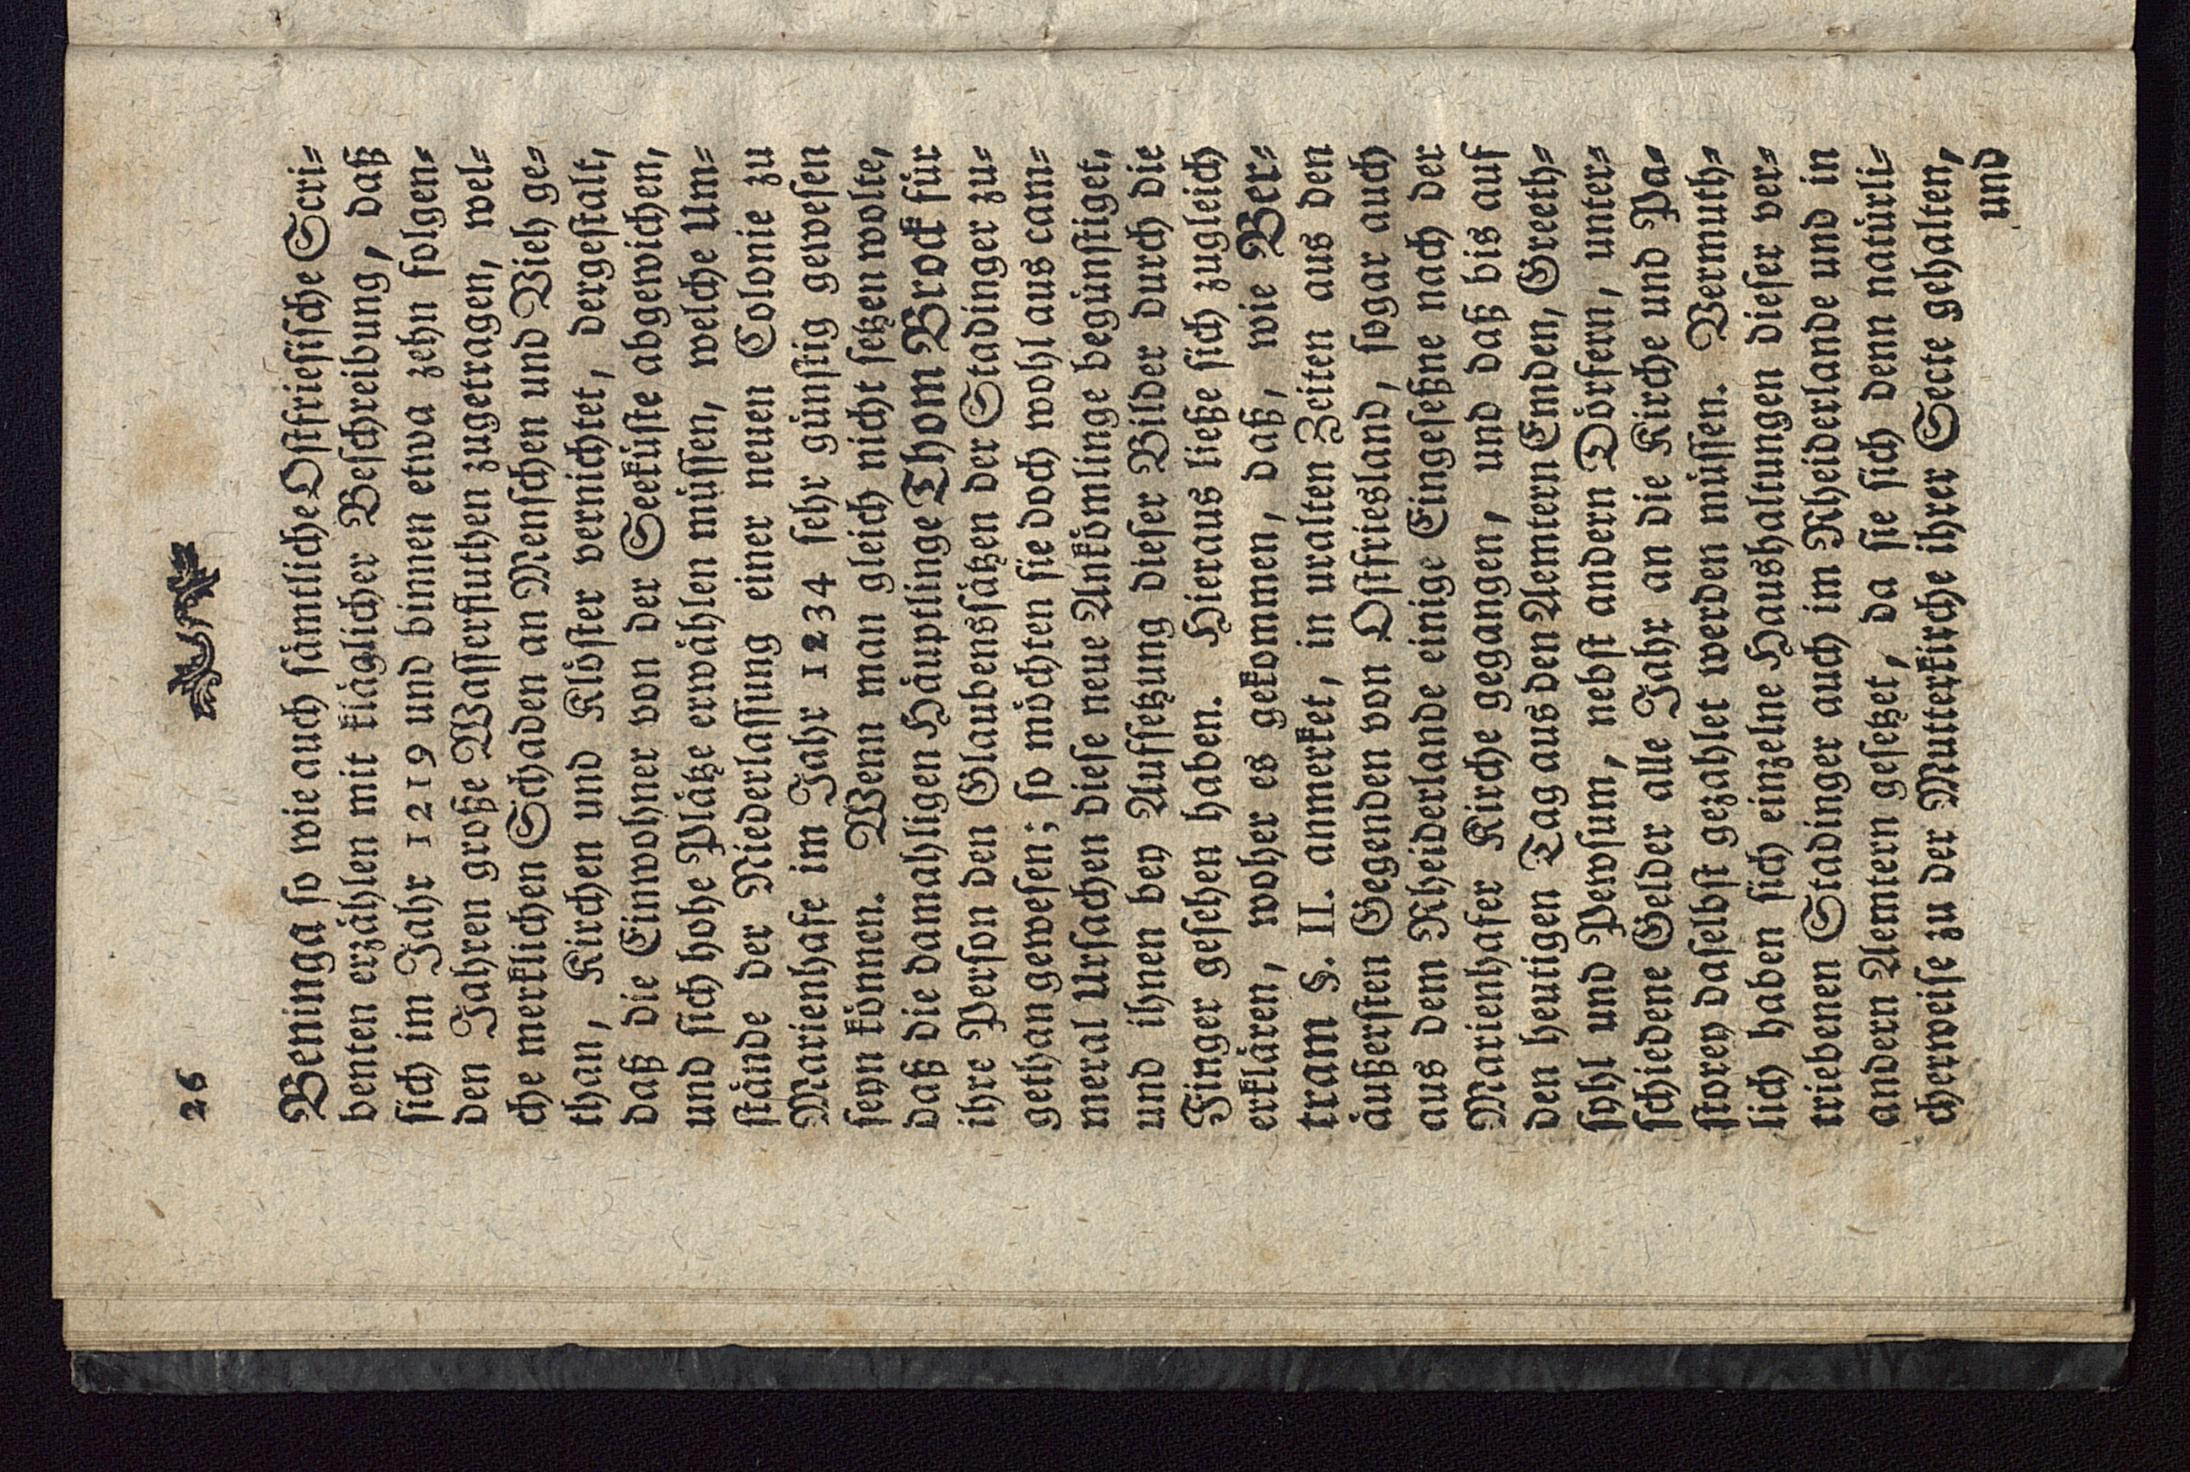 26
Beninga so wie auch sämtliche Ostfriesische Scri⸗
benten erzählen mit kläglicher Beschreibung, daß
sich im Jahr 1219 und binnen etwa zehn folgen⸗
den Jahren große Wasserfluthen zugetragen, wel⸗
che merklichen Schaden an Menschen und Vieh ge⸗
than, Kirchen und Klöster vernichtet, dergestalt,
daß die Einwohner von der Seeküste abgewichen,
und sich hohe Plätze erwählen müssen, welche Um⸗
stände der Niederlassung einer neuen Colonie zu
Marienhafe im Jahr 1234 sehr günstig gewesen
seyn können. Wenn man gleich nicht setzen wolte,
daß die damahligen Häuptlinge Thom Brock für
ihre Person den Glaubenssätzen der Stadinger zu⸗
gethan gewesen; so möchten sie doch wohl aus cam⸗
meral Ursachen diese neue Ankömlinge begünstiget,
und ihnen bey Aufsetzung dieser Bilder durch die
Finger gesehen haben. Hieraus ließe sich zugleich
erklären, woher es gekommen, daß, wie Ber⸗
tram §. II. anmerket, in uralten Zeiten aus den
äußersten Gegenden von Ostfriesland, sogar auch
aus dem Rheiderlande einige Eingeseßne nach der
Marienhafer Kirche gegangen, und daß bis auf
den heutigen Tag aus den Aemtern Emden, Greeth⸗
syhl und Pewsum, nebst andern Dörfern, unter⸗
schiedene Gelder alle Jahr an die Kirche und Pa⸗
storey daselbst gezahlet werden müssen. Vermuth⸗
lich haben sich einzelne Haushaltungen dieser ver⸗
triebenen Stadinger auch im Rheiderlande und in
andern Aemtern gesetzet, da sie sich denn natürli⸗
cherweise zu der Mutterkirche ihrer Secte gehalten,
und